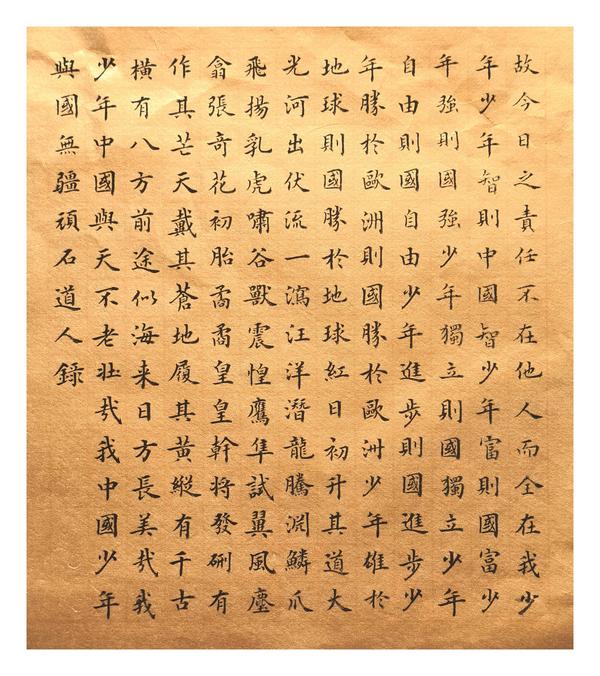 故今日之責任不在他人而全在我少
年少年智則中國智少年富則國富少
年強則國強少年獨立則國獨立少年
自由則國自由少年進步則國進步少
年勝於歐洲則國勝於歐洲少年雄於
地球則國勝於地球紅日初升其道大
光河出伏流一瀉汪洋潛龍騰淵鱗爪
飛揚乳虎嘯谷獸震惶鷹隼試翼風塵
翕張奇花初胎矞矞皇皇幹將發硎有
作其芒天戴其蒼地履其黃縱有千古
橫有八方前途似海来日方長美哉我
少年中國與天不老壯哉我中國少年
與國無疆頑石道人錄